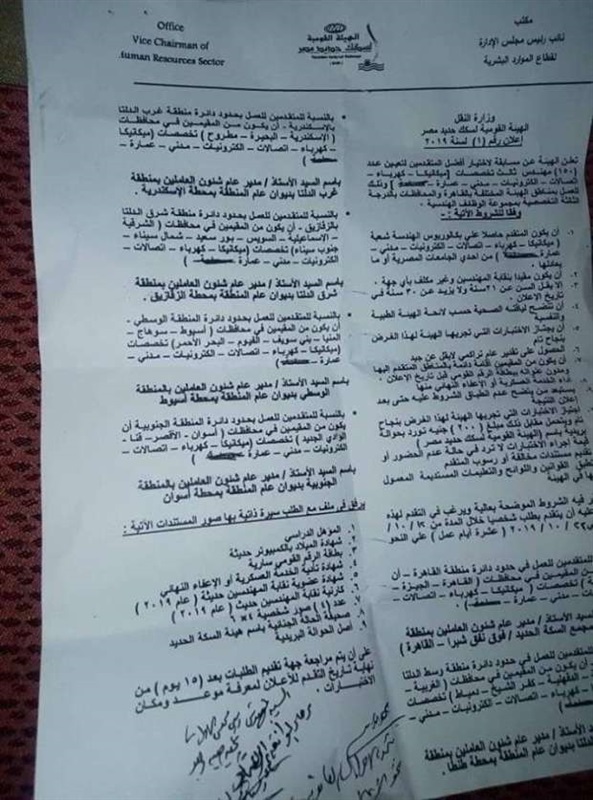 مكتب
نائب رئيس مجلس الإدارة
لقطاع الموارد البشرية
الهيئة القومية
لسكك حديد مصر
Office
Vice Chairman of
Human Resources Sector
وزارة النقل
الهيئة القومية لسكك حديد مصر
إعلان رقم (١) لسنة ٢٠١٩
تعلن الهيئة عن مسابقة لاختيار أفضل المتقدمين لتعيين عدد
(١٥٠) مهندس ثالث تخصصات (ميكانيكا – كهرباء –
اتصالات – الكترونيات – مدني – عمارة – ) وذلك
للعمل بمناطق الهيئة المختلفة بالقاهرة والمحافظات بالدرجة
الثالثة التخصصية بمجموعة الوظائف الهندسية .
وفقا للشروط الآتية :-
١. أن يكون المتقدم حاصلا علي بكالوريوس الهندسة شعبة
(ميكانيكا – كهرباء – اتصالات – الكترونيات – مدني –
عمارة ) من احدي الجامعات المصرية أو ما
يعادلها .
٢. أن يكون مقيدا بنقابة المهندسين وغير مكلف بأي جهة .
٣. ألا يقل السن عن ٢١ سنة ولا يزيد عن ٣٠ سنة في
تاريخ الإعلان .
٤. أن تتضح لياقته الصحية حسب لائحة الهيئة الطبية
والنفسية
٥. أن يجتاز الاختبارات التي تجريها الهيئة لهذا الغرض
بنجاح تام
٦. الحصول على تقدير عام تراكمي لايقل عن جيد
٧. أن يكون من المقيمين إقامة دائمة بالمناطق المتقدم إليها
ومدون عنوانه ببطاقة الرقم القومي قبل تاريخ الإعلان .
٨. أداء الخدمة العسكرية أو الاعفاء النهائي منها
يستبعد من يتضح عدم انطباق الشروط عليه حتى بعد
إعلان النتيجة
اجتياز الاختبارات التي تجريها الهيئة لهذا الغرض بنجاح
تام وتحصل مقابل ذلك مبلغ (٢٠٠) جنيه تورد بحوالة
بريدية باسم (الهيئة القومية لسكك حديد مصر)
قيمة إجراء الاختبارات لا ترد في حالة عدم الحضور أو
تقديم مستندات مخالفة أو رسوب المتقدم
تطبق القوانين واللوائح والتعليمات المستديمة المعمول
بها في الهيئة
فيه الشروط الموضحة بعالية ويرغب في التقدم لهذه
أن يتقدم بطلب شخصيا خلال المدة من
٢٠١٩/١٠ ( عشرة أيام عمل ) علي النحو
للمتقدمين للعمل في حدود دائرة منطقة القاهرة – أن
من المقيمين في محافظات ( القاهرة – الجيزة –
) تخصصات ( ميكانيكا – كهرباء – اتصالات –
– مدني – عمارة –
السيد الأستاذ / مدير عام شئون العاملين بمنطقة
بمجمع السكة الحديد / فوق نفق شبرا – القاهرة )
للمتقدمين للعمل في حدود دائرة منطقة وسط الدلتا
أن يكون من المقيمين في محافظات ( الغربية –
الدقهلية – كفر الشيخ – دمياط ) تخصصات
– كهرباء – اتصالات – الكترونيات – مدني –
السيد الأستاذ / مدير عام شئون العاملين بمنطقة
الدلتا بديوان عام المنطقة بمحطة طنطا .
• بالنسبة للمتقدمين للعمل بحدود دائرة منطقة غرب الدلتا
بالإسكندرية – أن يكون من المقيمين في محافظات
( الإسكندرية – البحيرة – مطروح ) تخصصات (ميكانيكا
– كهرباء – اتصالات – الكترونيات – مدني – عمارة –
باسم السيد الأستاذ / مدير عام شئون العاملين بمنطقة
غرب الدلتا بديوان عام المنطقة بمحطة الإسكندرية .
• بالنسبة للمتقدمين للعمل بحدود دائرة منطقة شرق الدلتا
بالزقازيق – أن يكون من المقيمين في محافظات ( الشرقية
– الإسماعيلية – السويس – بور سعيد – شمال سيناء –
جنوب سيناء) تخصصات (ميكانيكا – كهرباء – اتصالات –
الكترونيات – مدني – عمارة
باسم السيد الأستاذ / مدير عام شئون العاملين بمنطقة
شرق الدلتا بديوان عام المنطقة بمحطة الزقازيق .
• بالنسبة للمتقدمين للعمل بحدود دائرة المنطقة الوسطي -
أن يكون من المقيمين في محافظات ( أسيوط – سوهاج –
المنيا – بني سويف – الفيوم – البحر الأحمر) تخصصات
(ميكانيكا – كهرباء – اتصالات – الكترونيات – مدني –
عمارة –
باسم السيد الأستاذ / مدير عام شئون العاملين بالمنطقة
الوسطي بديوان عام المنطقة بمحطة أسيوط
• بالنسبة للمتقدمين للعمل بحدود دائرة المنطقة الجنوبية أن
يكون من المقيمين في محافظات ( أسوان – الأقصر – قنا –
الوادي الجديد ) تخصصات (ميكانيكا – كهرباء – اتصالات –
الكترونيات – مدني – عمارة –
باسم السيد الأستاذ / مدير عام شئون العاملين بالمنطقة
الجنوبية بديوان عام المنطقة بمحطة أسوان
يرفق في ملف مع الطلب سيرة ذاتية بها صور المستندات الآتية :-
١. المؤهل الدراسي
٢. شهادة الميلاد بالكمبيوتر حديثة
٣. بطاقة الرقم القومي سارية
٤. شهادة تأدية الخدمة العسكرية أو الإعفاء النهائي
٥. شهادة عضوية نقابة المهندسين حديثة ( عام ٢٠١٩ )
٦. كارنية نقابة المهندسين حديث ( عام ٢٠١٩ )
٧. عدد (٤) صور شخصية ٤×٦
٨. صحيفة الحالة الجنائية باسم هيئة السكة الحديد
٩. أصل الحوالة البريدية
على أن يتم مراجعة جهة تقديم الطلبات بعد (١٥ يوم ) من
نهاية تاريخ التقدم للأعلان لمعرفة موعد ومكان
الاختبارات .